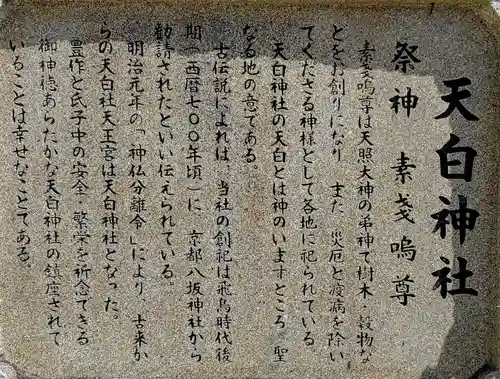 天白神社
祭神　素戔嗚尊
素戔嗚尊は天照大神の弟神で樹木、穀物な
どをお創りになり、また、災厄と疫病を除い
てくださる神様として各地に祀られている。
天白神社の天白とは神のいますところ　聖
なる地の意である。
古伝説によれば、当社の創祀は飛鳥時代後
期（西暦七〇〇年頃）に、京都八坂神社から
勧請されたといい伝えられている。
明治元年の「神仏分離令」により、古来か
らの天白社天王宮は天白神社となった。
豊作と氏子中の安全・繁栄を祈念できる
御神徳あらたかな天白神社の鎮座されて
いることは幸せなことである。